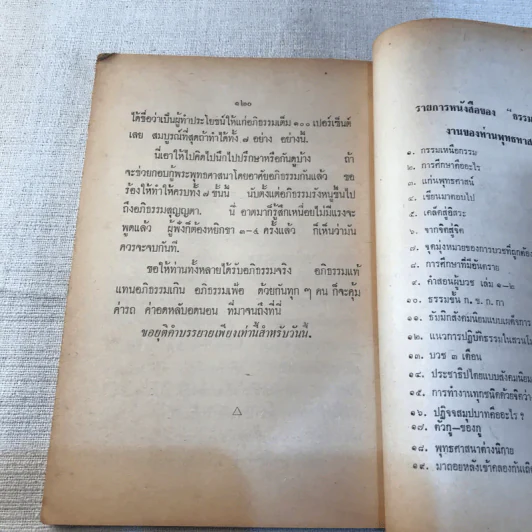 ๑๒๐
ได้ชื่อว่าเป็นผู้ทำประโยชน์ให้แก่อภิธรรมเต็ม ๑๐๐ เปอร์เซ็นต์
เลย สมบูรณ์ที่สุดถ้าทำได้ทั้ง ๗ อย่าง อย่างนี้.
นี่เอาให้ไปคิดไปนึกไปปรึกษาหรือกันดูบ้าง ถ้า
จะช่วยกอบกู้พระพุทธศาสนาโดยอาศัยอภิธรรมกันแล้ว ขอ
ร้องให้ทำให้ครบทั้ง ๗ ชั้นนี้ นับตั้งแต่อภิธรรมรังหนูขึ้นไป
ถึงอภิธรรมสุญญตา. นี่ อาตมาก็รู้สึกเหนื่อยไม่มีแรงจะ
พูดแล้ว ผู้ฟังก็ต้องหยิกขา ๓-๔ ครั้งแล้ว ก็เห็นว่ามัน
ควรจะจบกันที.
ขอให้ท่านทั้งหลายได้รับอภิธรรมจริง อภิธรรมแท้
แทนอภิธรรมเกิน อภิธรรมเฟ้อ ด้วยกันทุก ๆ คน ก็จะคุ้ม
ค่ารถ ค่าอดหลับอดนอน ที่มาจนถึงที่นี่
ขอยุติคำบรรยายเพียงเท่านี้สำหรับวันนี้.
รายการหนังสือของ "ธรรม
งานของท่านพุทธทาส
๑. กรรมเหนือกรรม
๒. การศึกษาคืออะไร
๓. แก่นพุทธศาสน์
๔. เขียนมาคอยไป
๕. เคล็ดสู่อิสระ
๖. จากจิตสู่จิต
๗. จุดมุ่งหมายของการบวชที่ถูกต้อง
๘. การศึกษาที่มีอันตราย
๙. คำสอนผู้บวช เล่ม ๑-๒
๑๐. ธรรมชั้น ก. ข. ก กา
๑๑. ธัมมิกสังคมนิยมแบบเผด็จการ
๑๒. แนวการปฏิบัติธรรมในสวนโม
๑๓. บวช ๓ เดือน
๑๔. ประชาธิปไตยแบบสังคมนิยม
๑๕. การทำงานทุกชนิดด้วยจิตว่าง
๑๖. ปฏิจจสมุปบาทคืออะไร ?
๑๗. ตัวกู–ของกู
๑๘. พุทธศาสนาต่างนิกาย
๑๙. มาถอยหลังเข้าคลองกันเถิด